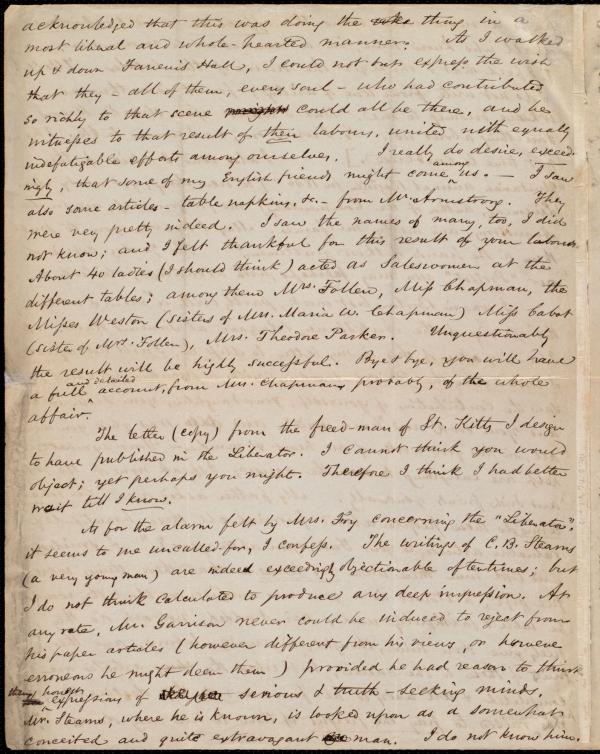 acknowledged that this was doing the thing in a
most liberal and whole-hearted manner. As I walked
up & down Faneuil Hall, I could not but express the wish
that they - all of them, every soul - who had contributed
so richly to that scene could all be there, and be
witnesses to that result of their labours, united with equally
indefatigable efforts among ourselves. I really do desire, exceed-
ingly, that some of my English friends might come among us. - I saw
also some articles - table napkins, &c. - from Mr. Armstrong. They
were very pretty indeed. I saw the names of many, too, I did
not know; and I felt thankful for this result of your labours.
About 40 ladies (I should think) acted as Saleswomen at the
different tables; among them Mrs. Follen, Miss Chapman, the
Misses Weston (sisters of Mrs. Maria W. Chapman) Miss Cabot
(sister of Mrs. Follen), Mrs. Theodore Parker. Unquestionably
the result will be highly successful. Bye & bye, you will have
a full and detailed account, from Mrs. Chapman, probably, of the whole
affair.
The letter (copy) from the freed-man of St. Kitts I design
to have published in the Liberator. I cannot think you would
object; yet perhaps you might. Therefore I think I had better
wait till I know.
As for the alarm felt by Mrs. Fry concerning the "Liberator",
it seems to me uncalled-for, I confess. The writings of C. B. Stearns
(a very young man) are indeed exceedingly objectionable oftentimes; but
I do not think calculated to produce any deep impression. At
any rate, Mr. Garrison never could be induced to reject from
his paper articles (however different from his views, or however
erroneous he might deem them) provided he had reason to think
them honest expressions of serious & truth-seeking minds.
Mr. Stearns, where he is known, is looked upon as a somewhat
conceited and quite extravagant man. I do not know him.